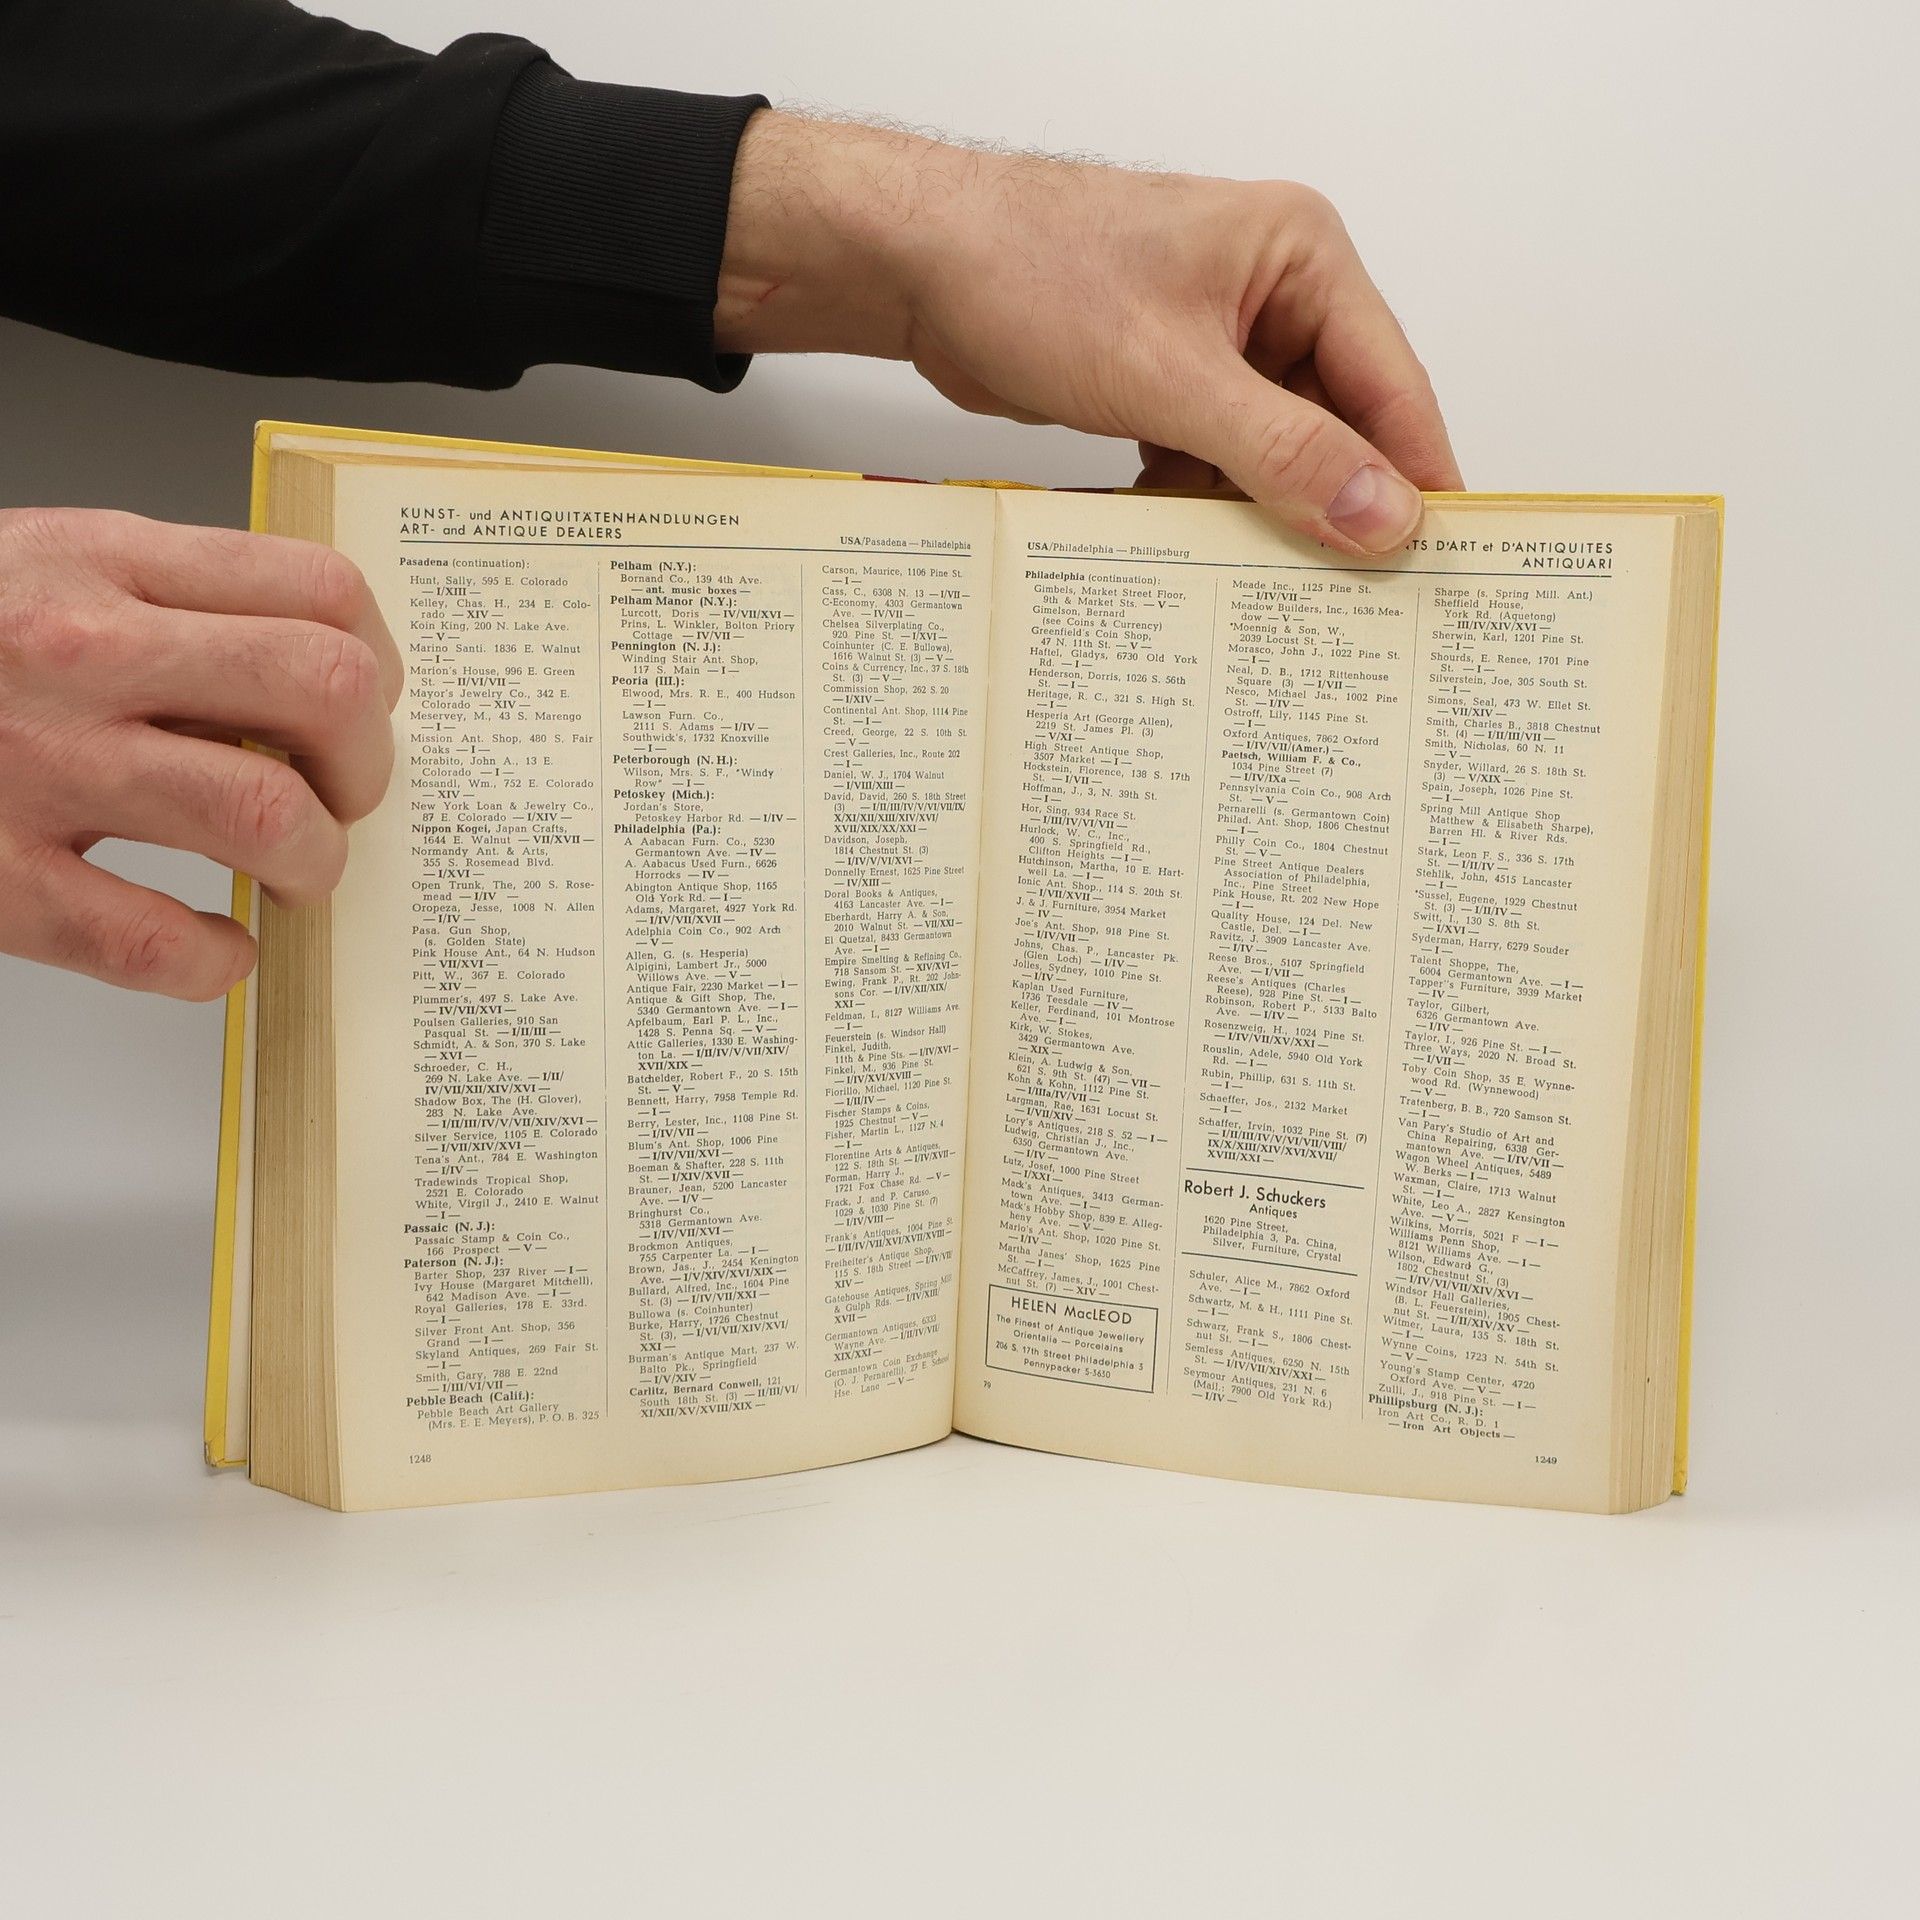 KUNST- und ANTIQUITÄTENHANDLUNGEN
ART- and ANTIQUE DEALERS
USA/Pasadena — Philadelphia
Pasadena (continuation):
Hunt, Sally, 595 E. Colorado
— I/XIII —
Kelley, Chas. H., 234 E. Colo-
rado — XIV —
Koin King, 200 N. Lake Ave.
— V —
Marino Santi. 1836 E. Walnut
— I —
Marion's House, 996 E. Green
St. — II/VI/VII —
Mayor's Jewelry Co., 342 E.
Colorado — XIV —
Meservey, M., 43 S. Marengo
— I —
Mission Ant. Shop, 480 S. Fair
Oaks — I —
Morabito, John A., 13 E.
Colorado — I —
Mosandl, Wm., 752 E. Colorado
— XIV —
New York Loan & Jewelry Co.,
87 E. Colorado — I/XIV —
Nippon Kogei, Japan Crafts,
1644 E. Walnut — VII/XVII —
Normandy Ant. & Arts,
355 S. Rosemead Blvd.
— I/XVI —
Open Trunk, The, 200 S. Rose-
mead — I/IV —
Oropeza, Jesse, 1008 N. Allen
— I/IV —
Pasa. Gun Shop,
(s. Golden State)
Pink House Ant., 64 N. Hudson
— VII/XVI —
Pitt, W., 367 E. Colorado
— XIV —
Plummer's, 497 S. Lake Ave.
— IV/VII/XVI —
Poulsen Galleries, 910 San
Pasqual St. — I/II/III —
Schmidt, A. & Son, 370 S. Lake
— XVI —
Schroeder, C. H.,
269 N. Lake Ave. — I/II/
IV/VII/XII/XIV/XVI —
Shadow Box, The (H. Glover),
283 N. Lake Ave.
— I/II/III/IV/V/VII/XIV/XVI —
Silver Service, 1105 E. Colorado
— I/VII/XIV/XVI —
Tena's Ant., 784 E. Washington
— I/IV —
Tradewinds Tropical Shop,
2521 E. Colorado
White, Virgil J., 2410 E. Walnut
— I —
Passaic (N. J.):
Passaic Stamp & Coin Co.,
166 Prospect — V —
Paterson (N. J.):
Barter Shop, 237 River — I —
Ivy House (Margaret Mitchell),
642 Madison Ave. — I —
Royal Galleries, 178 E. 33rd.
— I —
Silver Front Ant. Shop, 356
Grand — I —
Skyland Antiques, 269 Fair St.
— I —
Smith, Gary, 788 E. 22nd
— I/III/VI/VII —
Pebble Beach (Calif.):
Pebble Beach Art Gallery
(Mrs. E. E. Meyers), P. O. B. 325
Pelham (N.Y.):
Bornand Co., 139 4th Ave.
— ant. music boxes —
Pelham Manor (N.Y.):
Lurcott, Doris — IV/VII/XVI —
Prins, L. Winkler, Bolton Priory
Cottage — IV/VII —
Pennington (N. J.):
Winding Stair Ant. Shop,
117 S. Main — I —
Peoria (Ill.):
Elwood, Mrs. R. E., 400 Hudson
— I —
Lawson Furn. Co.,
2111 S. Adams — I/IV —
Southwick's, 1732 Knoxville
— I —
Peterborough (N. H.):
Wilson, Mrs. S. F., "Windy
Row" — I —
Petoskey (Mich.):
Jordan's Store,
Petoskey Harbor Rd. — I/IV —
Philadelphia (Pa.):
A Aabacan Furn. Co., 5230
Germantown Ave. — IV —
A. Aabacus Used Furn., 6626
Horrocks — IV —
Abington Antique Shop, 1165
Old York Rd. — I —
Adams, Margaret, 4927 York Rd.
— I/IV/VII/XVII —
Adelphia Coin Co., 902 Arch
— V —
Allen, G. (s. Hesperia)
Alpigini, Lambert Jr., 5000
Willows Ave. — V —
Antique Fair, 2230 Market — I —
Antique & Gift Shop, The,
5340 Germantown Ave. — I —
Apfelbaum, Earl P. L., Inc.,
1428 S. Penna Sq. — V —
Attic Galleries, 1330 E. Washing-
ton La. — I/II/IV/V/VII/XIV/
XVII/XIX —
Batchelder, Robert F., 20 S. 15th
St. — V —
Bennett, Harry, 7958 Temple Rd.
— I —
Berry, Lester, Inc., 1108 Pine St.
— I/IV/VII —
Blum's Ant. Shop, 1006 Pine
— I/IV/VII/XVI —
Boeman & Shafter, 228 S. 11th
St. — I/XIV/XVII —
Brauner, Jean, 5200 Lancaster
Ave. — I/V —
Bringhurst Co.,
5318 Germantown Ave.
— I/IV/VII/XVI —
Brockmon Antiques,
755 Carpenter La. — I —
Brown, Jas., J., 2454 Kenington
Ave. — I/V/XIV/XVI/XIX —
Bullard, Alfred, Inc., 1604 Pine
St. (3) — I/IV/VII/XXI —
Bullowa (s. Coinhunter)
Burke, Harry, 1726 Chestnut
St. (3), — I/VI/VII/XIV/XVI/
XXI —
Burman's Antique Mart, 237 W.
Balto Pk., Springfield
— I/V/XIV —
Carlitz, Bernard Conwell, 121
South 18th St. (3) — II/III/VI/
XI/XII/XV/XVIII/XIX —
Carson, Maurice, 1106 Pine St.
— I —
Cass, C., 6308 N. 13 — I/VII —
C-Economy, 4303 Germantown
Ave. — IV/VII —
Chelsea Silverplating Co.,
920 Pine St. — I/XVI —
Coinhunter (C. E. Bullowa),
1616 Walnut St. (3) — V —
Coins & Currency, Inc., 37 S. 18th
St. (3) — V —
Commission Shop, 262 S. 20
— I/XIV —
Continental Ant. Shop, 1114 Pine
St. — I —
Creed, George, 22 S. 10th St.
— V —
Crest Galleries, Inc., Route 202
— I —
Daniel, W. J., 1704 Walnut
— I/VIII/XIII —
David, David, 260 S. 18th Street
(3) — I/II/III/IV/V/VI/VII/IX/
X/XI/XII/XIII/XIV/XVI/
XVII/XIX/XX/XXI —
Davidson, Joseph,
1814 Chestnut St. (3)
— I/IV/V/VI/XVI —
Donnelly Ernest, 1625 Pine Street
— IV/XIII —
Doral Books & Antiques,
4163 Lancaster Ave. — I —
Eberhardt, Harry A. & Son,
2010 Walnut St. — VII/XXI —
El Quetzal, 8433 Germantown
Ave. — I —
Empire Smelting & Refining Co.,
718 Sansom St. — XIV/XVI —
Ewing, Frank P., Rt. 202 John-
sons Cor. — I/IV/XII/XIX/
XXI —
Feldman, I., 8127 Williams Ave.
— I —
Feuerstein (s. Windsor Hall)
Finkel, Judith,
11th & Pine Sts. — I/IV/XVI —
Finkel, M., 936 Pine St.
— I/IV/XVI/XVIII —
Fiorillo, Michael, 1120 Pine St.
— I/II/IV —
Fischer Stamps & Coins,
1925 Chestnut — V —
Fisher, Martin L., 1127 N. 4
— I —
Florentine Arts & Antiques,
122 S. 18th St. — I/IV/XVII —
Forman, Harry J.,
1721 Fox Chase Rd. — V —
Frack, J. and P. Caruso,
1029 & 1030 Pine St. (7)
— I/IV/VIII —
Frank's Antiques, 1004 Pine St.
— I/II/IV/VII/XVI/XVII/XVIII —
Freiheiter's Antique Shop,
115 S. 18th Street — I/IV/VII/
XIV —
Gatehouse Antiques, Spring Mill
& Gulph Rds. — I/IV/XIII/
XVII —
Germantown Antiques, 6333
Wayne Ave. — I/II/IV/VII/
XIX/XXI —
Germantown Coin Exchange
(O. J. Pernarelli), 27 E. School
Hse. Lane — V —
1248
USA/Philadelphia — Phillipsburg
D'ART et D'ANTIQUITES
ANTIQUARI
Philadelphia (continuation):
Gimbels, Market Street Floor,
9th & Market Sts. — V —
Gimelson, Bernard
(see Coins & Currency)
Greenfield's Coin Shop,
47 N. 11th St. — V —
Haftel, Gladys, 6730 Old York
Rd. — I —
Henderson, Dorris, 1026 S. 56th
St. — I —
Heritage, R. C., 321 S. High St.
— I —
Hesperia Art (George Allen),
2219 St. James Pl. (3)
— V/XI —
High Street Antique Shop,
3507 Market — I —
Hockstein, Florence, 138 S. 17th
St. — I/VII —
Hoffman, J., 3, N. 39th St.
— I —
Hor, Sing, 934 Race St.
— I/III/IV/VI/VII —
Hurlock, W. C., Inc.,
400 S. Springfield Rd.,
Clifton Heights — I —
Hutchinson, Martha, 10 E. Hart-
well La. — I —
Ionic Ant. Shop., 114 S. 20th St.
— I/VII/XVII —
J. & J. Furniture, 3954 Market
— IV —
Joe's Ant. Shop, 918 Pine St.
— I/IV/VII —
Johns, Chas. P., Lancaster Pk.
(Glen Loch) — I/IV —
Jolles, Sydney, 1010 Pine St.
— I/IV —
Kaplan Used Furniture,
1736 Teesdale — IV —
Keller, Ferdinand, 101 Montrose
Ave. — I —
Kirk, W. Stokes,
3429 Germantown Ave.
— XIX —
Klein, A. Ludwig & Son,
621 S. 9th St. (47) — VII —
Kohn & Kohn, 1112 Pine St.
— I/IIIa/IV/VII —
Largman, Rae, 1631 Locust St.
— I/VII/XIV —
Lory's Antiques, 218 S. 52 — I —
Ludwig, Christian J., Inc.,
6350 Germantown Ave.
— I/IV —
Lutz, Josef, 1000 Pine Street
— I/XXI —
Mack's Antiques, 3413 German-
town Ave. — I —
Mack's Hobby Shop, 839 E. Alleg-
heny Ave. — V —
Mario's Ant. Shop, 1020 Pine St.
— I/IV —
Martha Janes' Shop, 1625 Pine
St. — I —
McCaffrey, James, J., 1001 Chest-
nut St. (7) — XIV —
HELEN MacLEOD
The Finest of Antique Jewellery
Orientalia — Porcelains
206 S. 17th Street Philadelphia 3
Pennypacker 5-3630
79
Meade Inc., 1125 Pine St.
— I/IV/VII —
Meadow Builders, Inc., 1636 Mea-
dow — V —
*Moennig & Son, W.,
2039 Locust St. — I —
Morasco, John J., 1022 Pine St.
— I —
Neal, D. B., 1712 Rittenhouse
Square (3) — I/VII —
Nesco, Michael Jas., 1002 Pine
St. — I/IV —
Ostroff, Lily, 1145 Pine St.
— I —
Oxford Antiques, 7862 Oxford
— I/IV/VII/(Amer.) —
Paetsch, William F. & Co.,
1034 Pine Street (7)
— I/IV/IXa —
Pennsylvania Coin Co., 908 Arch
St. — V —
Pernarelli (s. Germantown Coin)
Philad. Ant. Shop, 1806 Chestnut
— I —
Philly Coin Co., 1804 Chestnut
St. — V —
Pine Street Antique Dealers
Association of Philadelphia,
Inc., Pine Street
Pink House, Rt. 202 New Hope
— I —
Quality House, 124 Del. New
Castle, Del. — I —
Ravitz, J. 3909 Lancaster Ave.
— I/IV —
Reese Bros., 5107 Springfield
Ave. — I/VII —
Reese's Antiques (Charles
Reese), 928 Pine St. — I —
Robinson, Robert P., 5133 Balto
Ave. — I/IV —
Rosenzweig, H., 1024 Pine St.
— I/IV/VII/XV/XXI —
Rouslin, Adele, 5940 Old York
Rd. — I —
Rubin, Phillip, 631 S. 11th St.
— I —
Schaeffer, Jos., 2132 Market
— I —
Schaffer, Irvin, 1032 Pine St. (7)
— I/II/III/IV/V/VI/VII/VIII/
IX/X/XIII/XIV/XVI/XVII/
XVIII/XXI —
Robert J. Schuckers
Antiques
1620 Pine Street,
Philadelphia 3, Pa. China,
Silver, Furniture, Crystal
Schuler, Alice M., 7862 Oxford
Ave. — I —
Schwartz, M. & H., 1111 Pine St.
— I —
Schwarz, Frank S., 1806 Chest-
nut St. — I —
Semless Antiques, 6250 N. 15th
St. — I/IV/VII/XIV/XXI —
Seymour Antiques, 231 N. 6
(Mail.: 7900 Old York Rd.)
— I/IV —
Sharpe (s. Spring Mill. Ant.)
Sheffield House,
York Rd. (Aquetong)
— III/IV/XIV/XVI —
Sherwin, Karl, 1201 Pine St.
— I —
Shourds, E. Renee, 1701 Pine
St. — I —
Silverstein, Joe, 305 South St.
— I —
Simons, Seal, 473 W. Ellet St.
— VII/XIV —
Smith, Charles B., 3818 Chestnut
St. (4) — I/II/III/VII —
Smith, Nicholas, 60 N. 11
— V —
Snyder, Willard, 26 S. 18th St.
(3) — V/XIX —
Spain, Joseph, 1026 Pine St.
— I —
Spring Mill Antique Shop
Matthew & Elisabeth Sharpe),
Barren Hl. & River Rds.
— I —
Stark, Leon F. S., 336 S. 17th
St. — I/II/IV —
Stehlik, John, 4515 Lancaster
— I —
*Sussel, Eugene, 1929 Chestnut
St. (3) — I/II/IV —
Switt, I., 130 S. 8th St.
— I/XVI —
Syderman, Harry, 6279 Souder
— I —
Talent Shoppe, The,
6004 Germantown Ave. — I —
Tapper's Furniture, 3939 Market
— IV —
Taylor, Gilbert,
6326 Germantown Ave.
— I/IV —
Taylor, I., 926 Pine St. — I —
Three Ways, 2020 N. Broad St.
— I/VII —
Toby Coin Shop, 35 E. Wynne-
wood Rd. (Wynnewood)
— V —
Tratenberg, B. B., 720 Samson St.
— I —
Van Pary's Studio of Art and
China Repairing, 6338 Ger-
mantown Ave. — I/IV/VII —
Wagon Wheel Antiques, 5489
W. Berks — I —
Waxman, Claire, 1713 Walnut
St. — I —
White, Leo A., 2827 Kensington
Ave. — V —
Wilkins, Morris, 5021 F — I —
Williams Penn Shop,
8121 Williams Ave. — I —
Wilson, Edward G.,
1802 Chestnut St. (3)
— I/IV/VI/VII/XIV/XVI —
Windsor Hall Galleries,
(B. L. Feuerstein), 1905 Chest-
nut St. — I/II/XIV/XV —
Witmer, Laura, 135 S. 18th St.
— I —
Wynne Coins, 1723 N. 54th St.
— V —
Young's Stamp Center, 4720
Oxford Ave. — V —
Zulli, J., 918 Pine St. — I —
Phillipsburg (N. J.):
Iron Art Co., R. D. 1
— Iron Art Objects —
1249